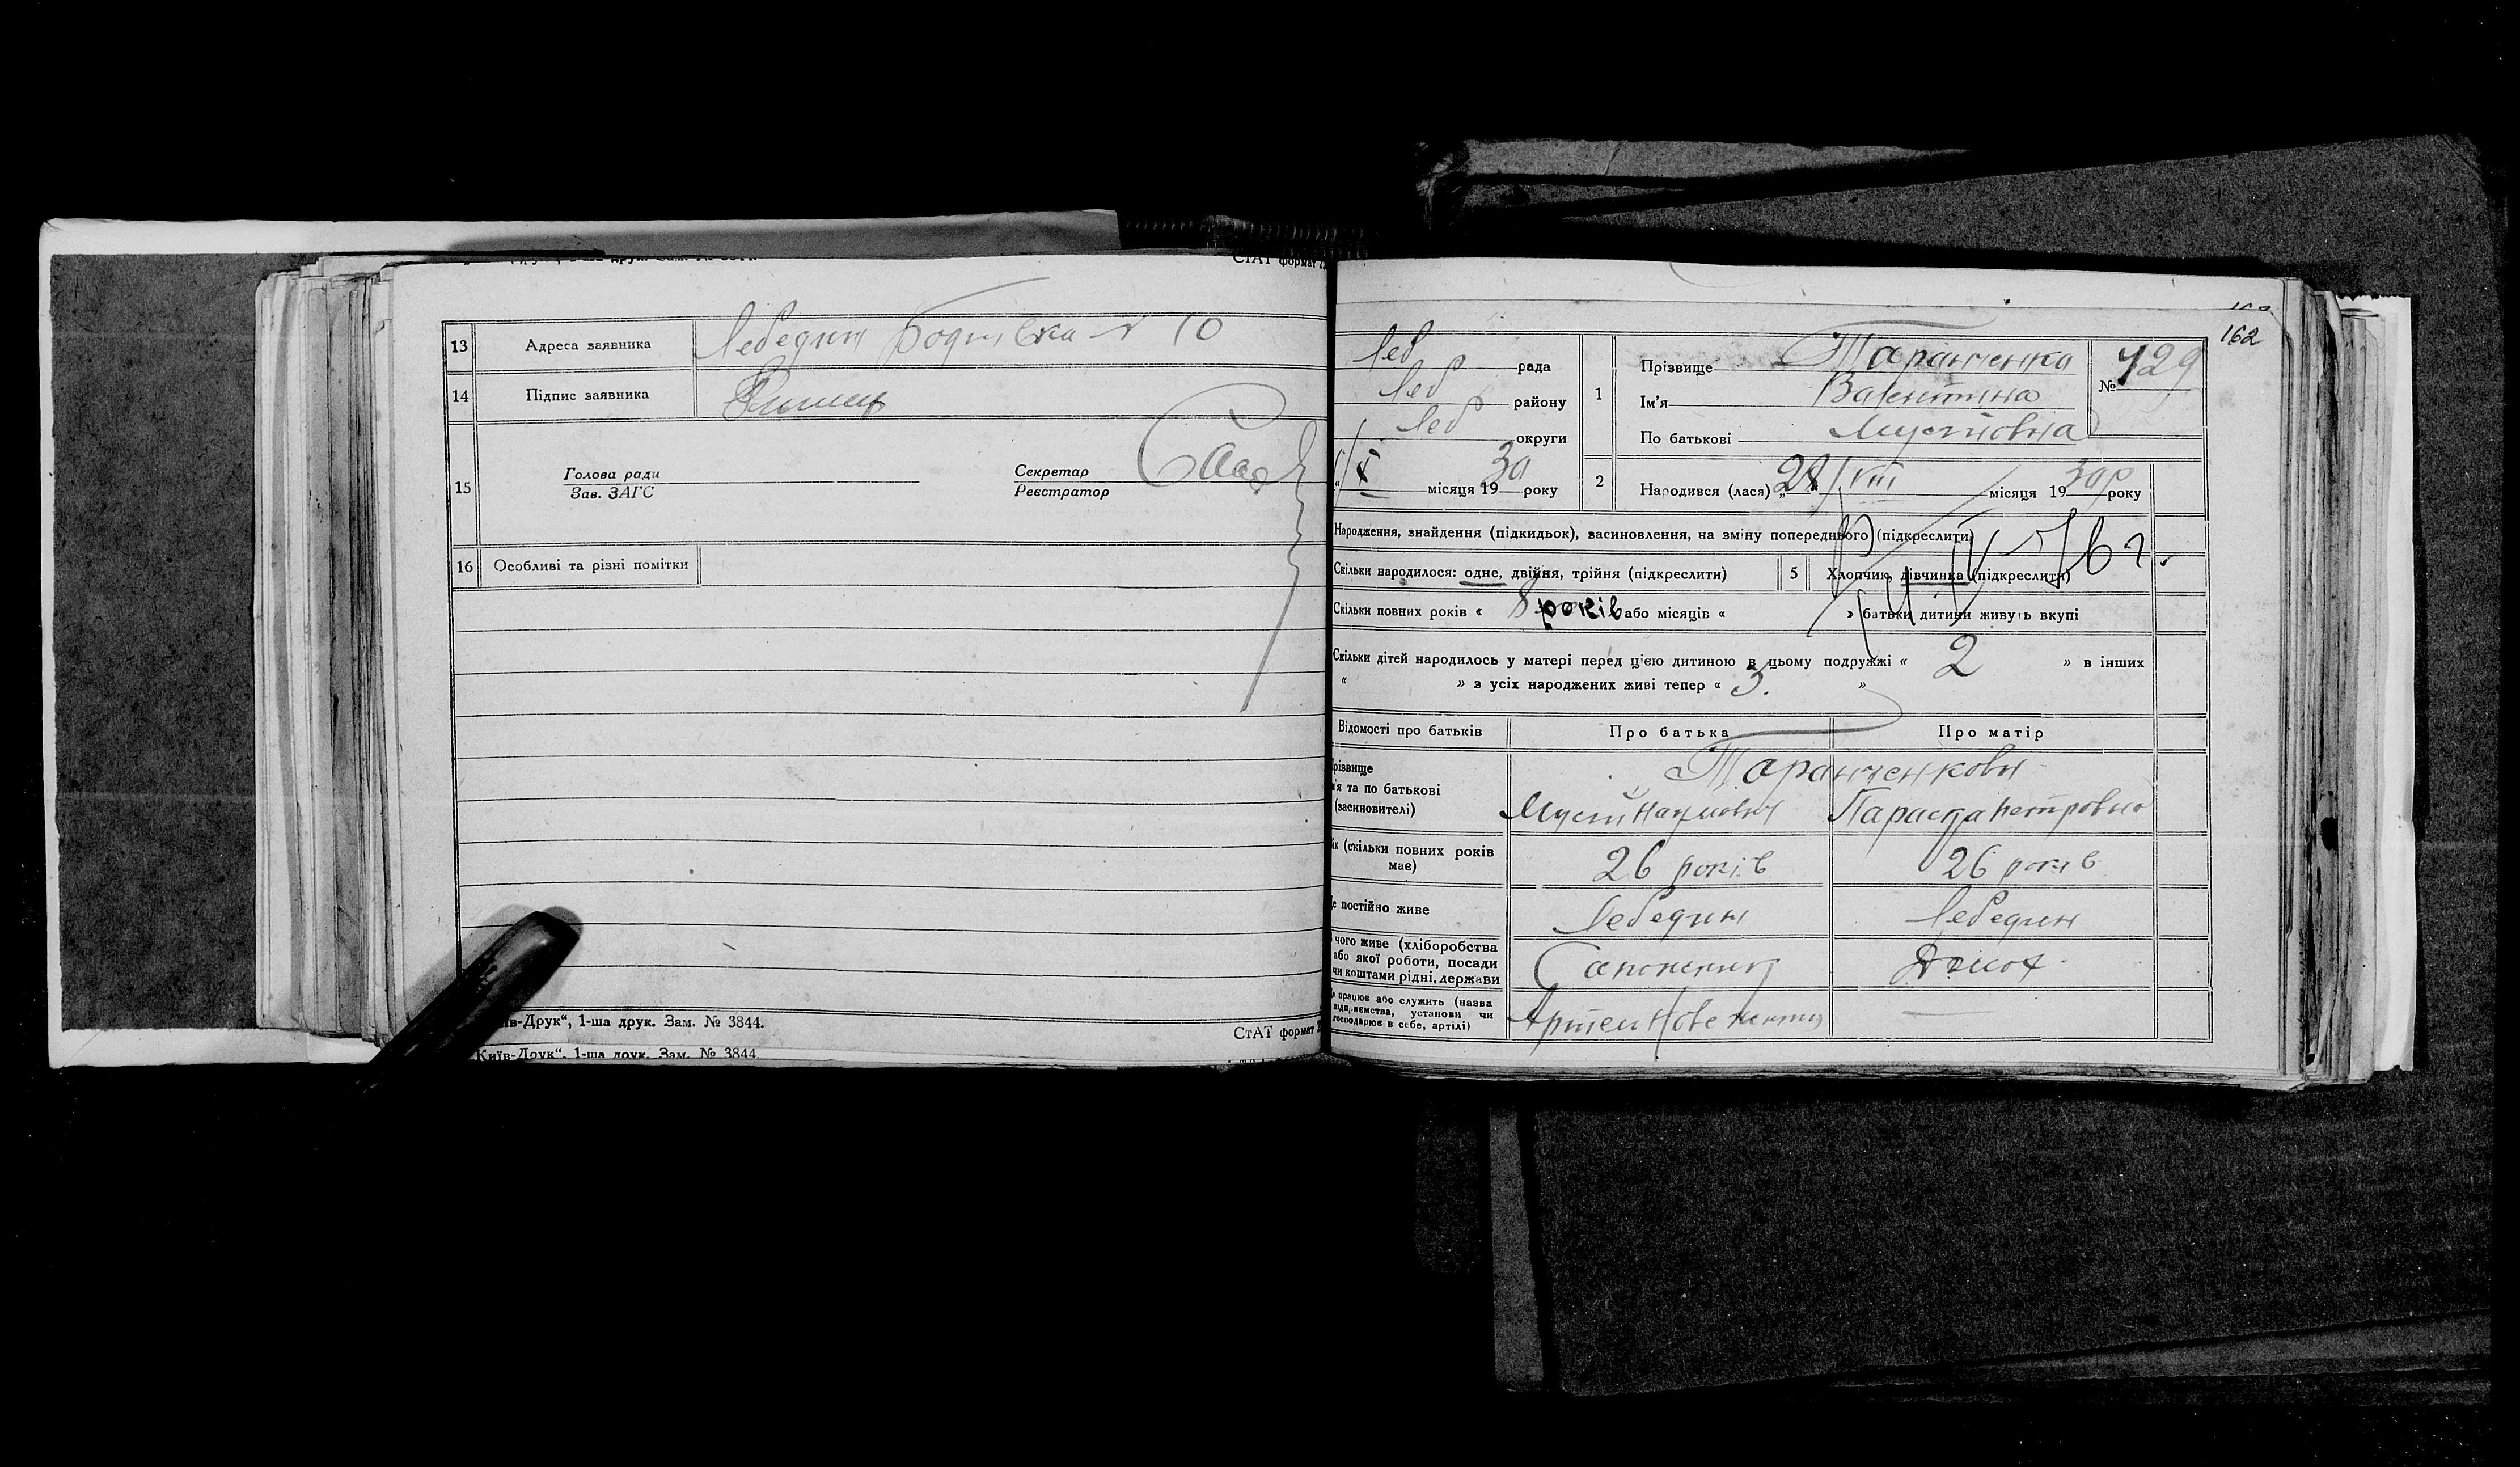 СтАТ формат
13 Адреса заявника Лебедин No 10
14 Підпис заявника
15 Голова ради
Зав. ЗАГС
Секретар
Реєстратор
16 Особливі та різні помітки
Київ-Друк“, 1-ша друк. Зам. № 3844.
СтАТ формат
Київ-Друк“, 1-ша друк. Зам. № 3844
162
Леб рада
Леб району
Леб округи
X місяця 1930 року
1 Прізвище Таранченко
Ім'я Валентина
По батькові Мусіївна
№ 429
2 Народився (лася) „28 VIII місяця 1930р року
Народження, знайдення (підкидьок), засиновлення, на зміну попереднього) (підкреслити)
Скільки народилося: одне, двійня, трійня (підкреслити)
5 Хлопчик, дівчинка (підкреслити)
Скільки повних років « 8 років або місяців « » батьки дитини живуть вкупі
Скільки дітей народилось у матері перед цією дитиною в цьому подружжі « 2 » в інших
« » з усіх народжених живі тепер « 3. »
Відомості про батьків Про батька Про матір
різвище Таранченкови
м'я та по батькові
(засиновителі) Мусій Наумович Параска Петровна
ік (скільки повних років
має) 26 років 26 років
е постійно живе Лебедин Лебедин
чого живе (хліборобства
або якої роботи, посади
чи коштами рідні, держави Сапожник Домог
е працює або служить (назва
підприємства, установи чи
господарює в себе, артілі)